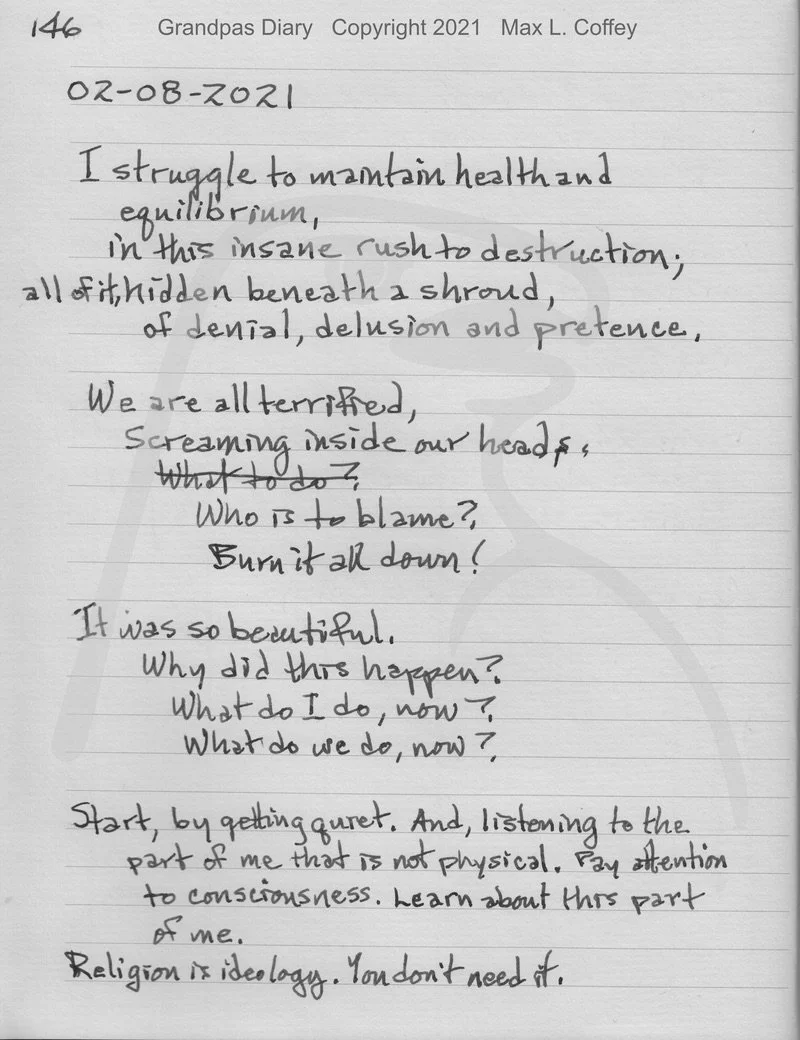 146
Grandpas Diary Copyright 2021 Max L. Coffey
02-08-2021
I struggle to maintain health and
equilibrium,
in this insane rush to destruction;
all of it, hidden beneath a shroud,
of denial, delusion and pretence.
We are all terrified,
Screaming inside our heads.
What to do?
Who is to blame?
Burn it all down!
It was so beautiful.
Why did this happen?
What do I do, now?
What do we do, now?
Start, by getting quiet. And, listening to the
part of me that is not physical. Pay attention
to consciousness. Learn about this part
of me.
Religion is ideology. You don't need it.